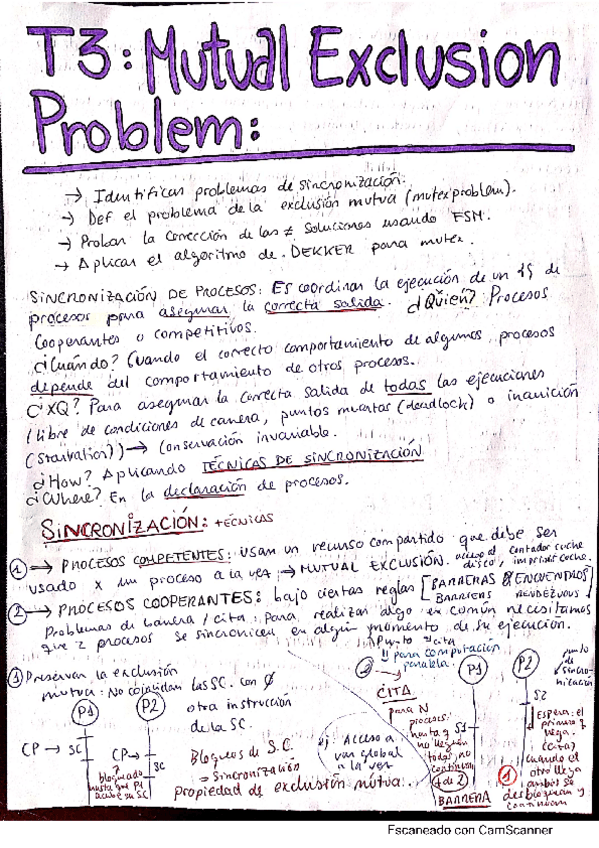 T3: Mutual Exclusion
Problem:
→ Identificar problemas de sincronización.
→ Def el problema de la exclusión mutua (mutex problem).
→ Probar la corrección de las ≠ soluciones usando FSM.
→ Aplicar el algoritmo de DEKKER para mutex.
SINCRONIZACIÓN DE PROCESOS: Es coordinar la ejecución de un
procesos para asegurar la correcta salida. ¿Quién? Procesos
Cooperantes o competitivos.
¿Cuándo? Cuando el correcto comportamiento de algunos procesos
depende del comportamiento de otros procesos.
¿XQ? Para asegurar la correcta salida de todas las ejecuciones
(libre de condiciones de carrera, puntos muertos (deadlock) o inanición
(starvation)) → Conservación invariable.
¿How? Aplicando TÉCNICAS DE SINCRONIZACIÓN
¿Where? En la declaración de procesos.
SINCRONIZACIÓN: +TÉCNICAS
1 → PROCESOS COMPETENTES: usan un recurso compartido que debe ser
usado x un proceso a la vez → MUTUAL EXCLUSIÓN. acceso al contador coche
disco, imprimir coche
2 → PROCESOS COOPERANTES: bajo ciertas reglas [BARRERAS & ENCUENTROS]
BARRIERS RENDEZVOUS
Problemas de barrera / cita: para realizar algo en común necesitamos
que 2 procesos se sincronicen en algún momento de su ejecución.
Punto cita
para computación
paralela.
1 Preservan la exclusión
mutua: No coincidan las SC. con
otra instrucción
de la SC.
P1
P2
CP → SC
CP → SC
?
bloqueado
hasta que P1
acabe su SC
Bloqueos de S.C.
= Sincronización
propiedad de exclusión mútua.
Acceso a
var global
a la vez
2 →
CITA
para N
procesos:
hasta q
no lleguen
todos, no
continúan
+ de 2
P1
S1
BARRERA
P2
S2
punto
de
sincronización
1
Espera: el
primero q
llega.
(cita)
cuando el
otro llega
ambos se
desbloquean y
continúan
Escaneado con CamScanner